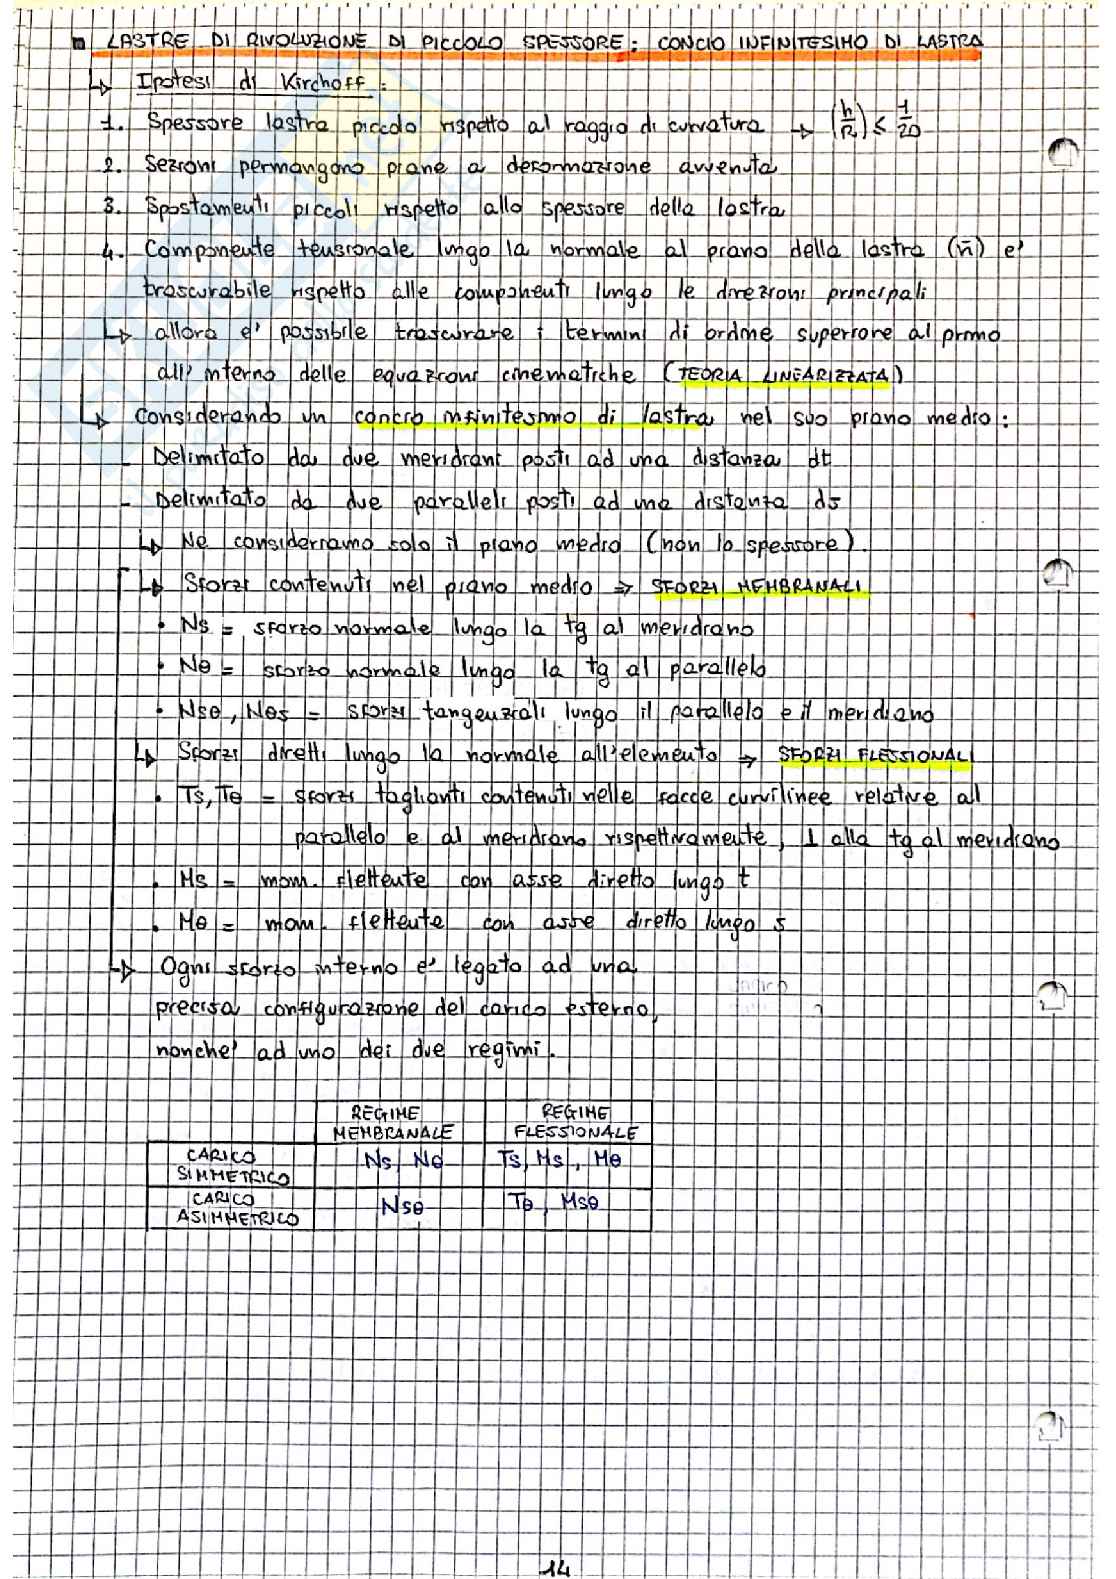 LASTRE DI RIVOLUZIONE DI PICCOLO SPESSORE: CONCIO INFINITESIMO DI LASTRA
↳ Ipotesi di Kirchoff:
1. Spessore lastra piccolo rispetto al raggio di curvatura → (h/R) ≤ 1/20
2. Sezioni permangono piane a deformazione avvenuta
3. Spostamenti piccoli rispetto allo spessore della lastra
4. Componente tensionale lungo la normale al piano della lastra (n̄) e'
trascurabile rispetto alle componenti lungo le direzioni principali
↳ allora e' possibile trascurare i termini di ordine superiore al primo
all'interno delle equazioni cinematiche (TEORIA LINEARIZZATA)
↳ Considerando un concio infinitesimo di lastra nel suo piano medio:
- Delimitato da due meridiani posti ad una distanza dt
- Delimitato da due paralleli posti ad una distanza ds
↳ Ne consideriamo solo il piano medio (non lo spessore).
↳ Sforzi contenuti nel piano medio ⇒ SFORZI MEMBRANALI
• Ns = sforzo normale lungo la tg al meridiano
• Nθ = sforzo normale lungo la tg al parallelo
• Nsθ, Nθs = sforzi tangenziali lungo il parallelo e il meridiano
↳ Sforzi diretti lungo la normale all'elemento ⇒ SFORZI FLESSIONALI
• Ts, Tθ = sforzi taglianti contenuti nelle facce curvilinee relative al
parallelo e al meridiano rispettivamente, ⊥ alla tg al meridiano
• Ms = mom. flettente con asse diretto lungo t
• Mθ = mom. flettente con asse diretto lungo s
↳ Ogni sforzo interno e' legato ad una
precisa configurazione del carico esterno,
nonche' ad uno dei due regimi.
REGIME MEMBRANALE
REGIME FLESSIONALE
CARICO SIMMETRICO
Ns, Nθ
Ts, Ms, Mθ
CARICO ASIMMETRICO
Nsθ
Tθ, Msθ
14